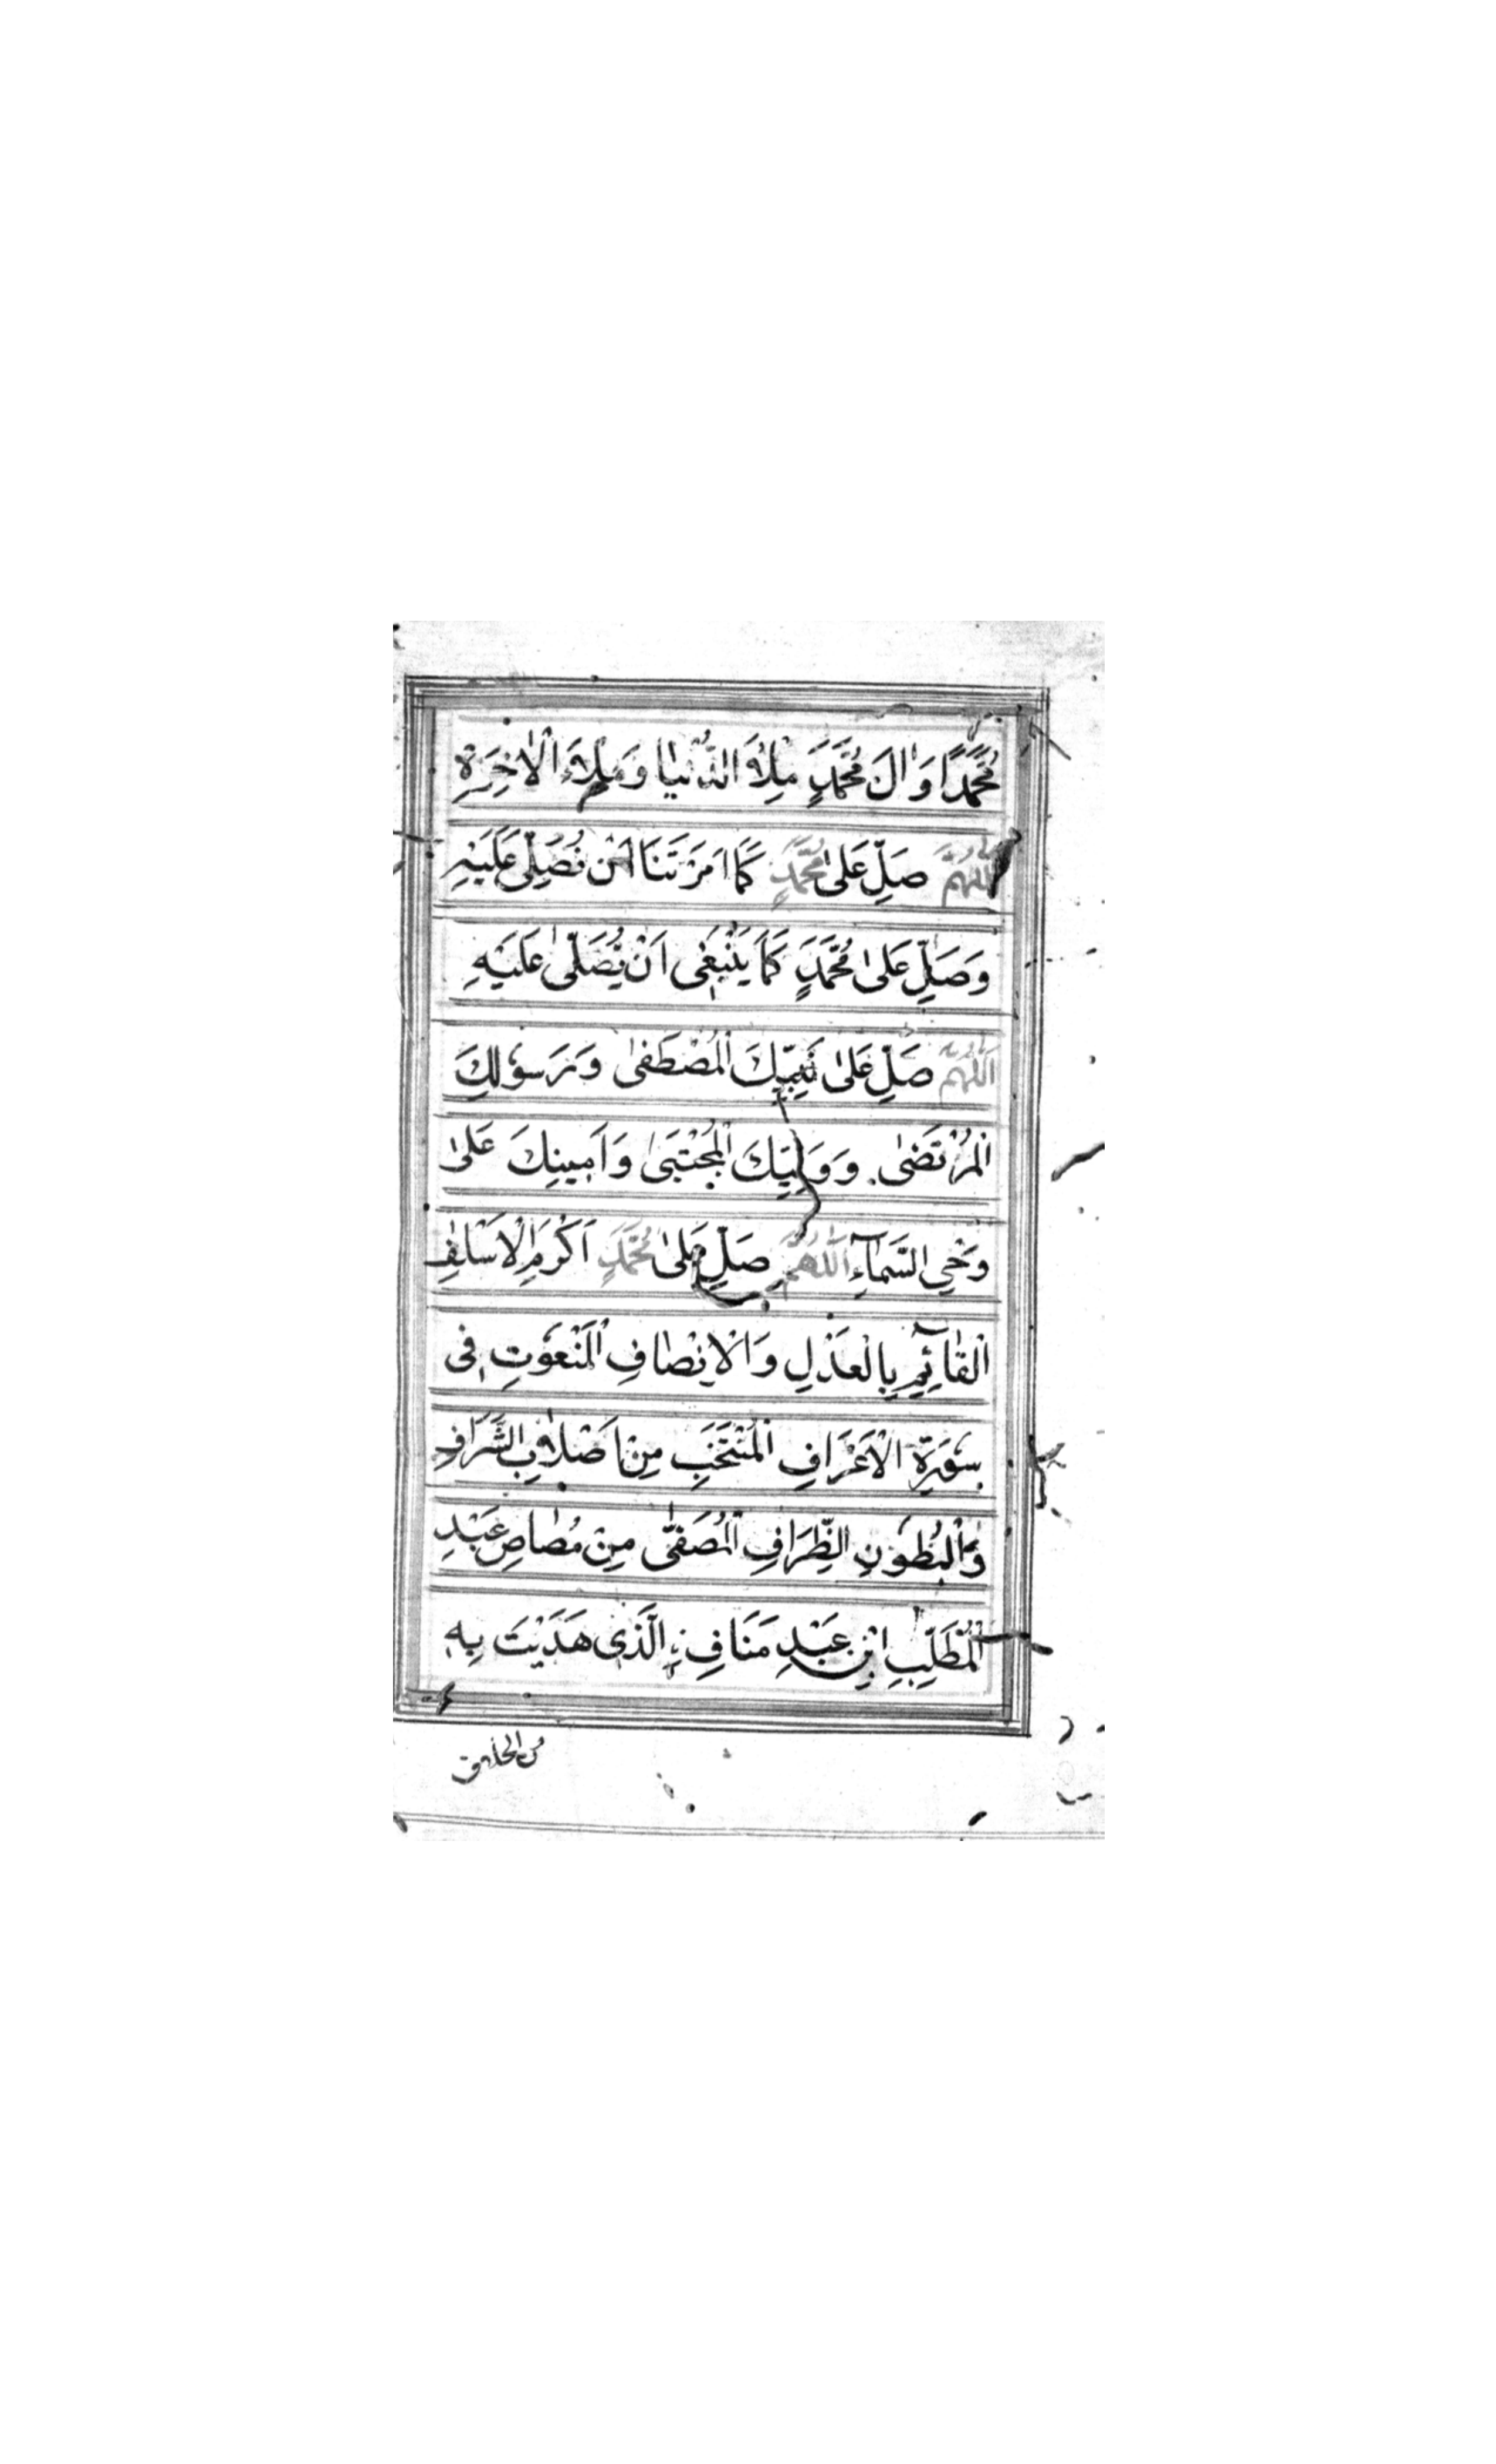 مُحَمَّدًا وَاٰلَ مُحَمَّدٍ مِلْاَ الدُّنْيَا وَمِلْاَءَ الْاٰخِرَةِ
اَللّٰهُمَّ صَلِّ عَلٰى مُحَمَّدٍ كَمَا اَمَرْتَنَا اَنْ نُصَلِّىَ عَلَيْهِ
وَصَلِّ عَلٰى مُحَمَّدٍ كَمَا يَنْبَغٖى اَنْ يُّصَلّٰى عَلَيْهِ
اَللّٰهُمَّ صَلِّ عَلٰى نَبِيِّكَ الْمُصْطَفٰى وَرَسُوْلِكَ
الْمُرْتَضٰى وَوَلِيِّكَ الْمُجْتَبٰى وَاَمِيْنِكَ عَلٰى
وَحْىِ السَّمَآءِ اَللّٰهُمَّ صَلِّ عَلٰى مُحَمَّدٍ اَكْرَمِ الْاَسْلَافِ
الْقَآئِمِ بِالْعَدْلِ وَالْاِنْصَافِ الْمَنْعُوْتِ فِى
سُوْرَةِ الْاَعْرَافِ الْمُنْتَخَبِ مِنْ اَصْلَابِ الشَّرَافِ
وَالْبُطُوْنِ الظِّرَافِ الْمُصَفّٰى مِنْ مُصَاصِ عَبْدِ
الْمُطَّلِبِ ابْنِ عَبْدِ مَنَافِ ۣ الَّذِى هَدَيْتَ بِهٖ